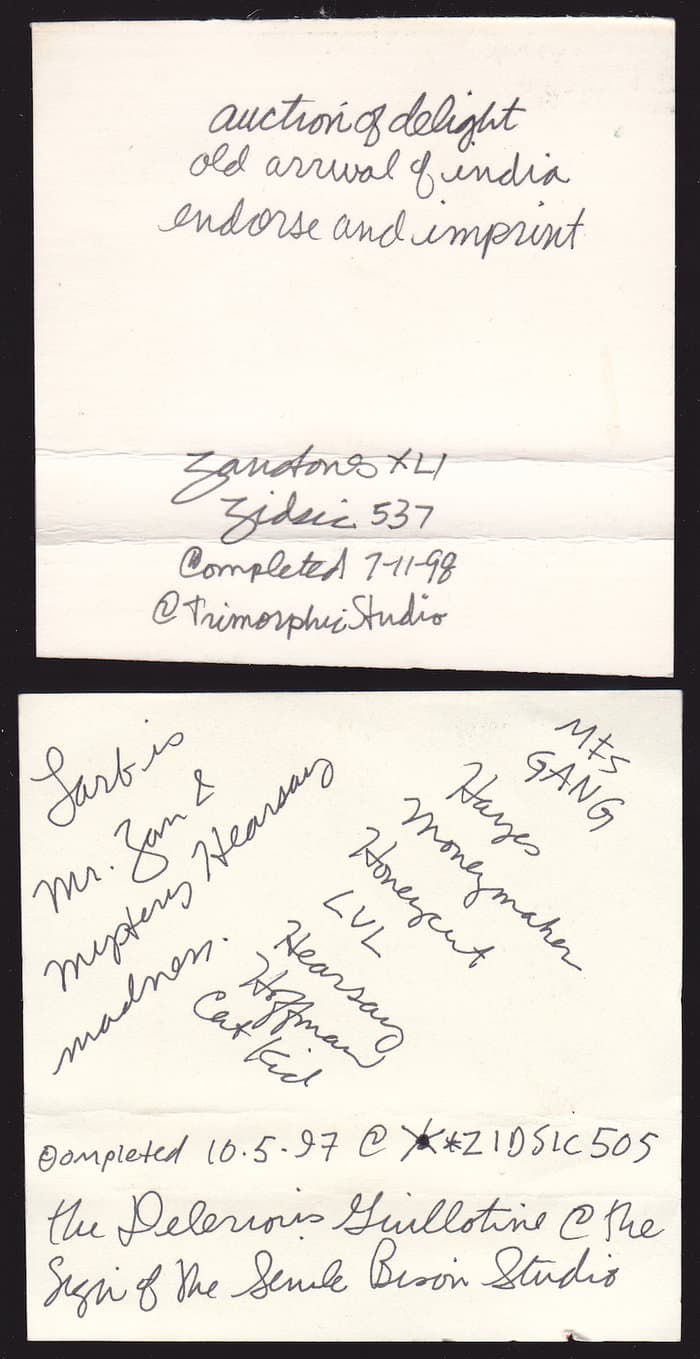 auction of delight
old arrival of india
endorse and imprint
Zandtones XLI
Zidsic 537
Completed 7-11-98
@ Trimorphic Studio
Larb is
Mr. Zan &
Mystery Hearsay
madness.
MFS
GANG
Hayes
Moneymaker
Honeycut
LVL
Hearsay
Hoffman
Cat Kid
Completed 10.5.97 @ **ZIDSIC 505
the Delerious Guillotine @ the
Sign of the Senile Bison Studio